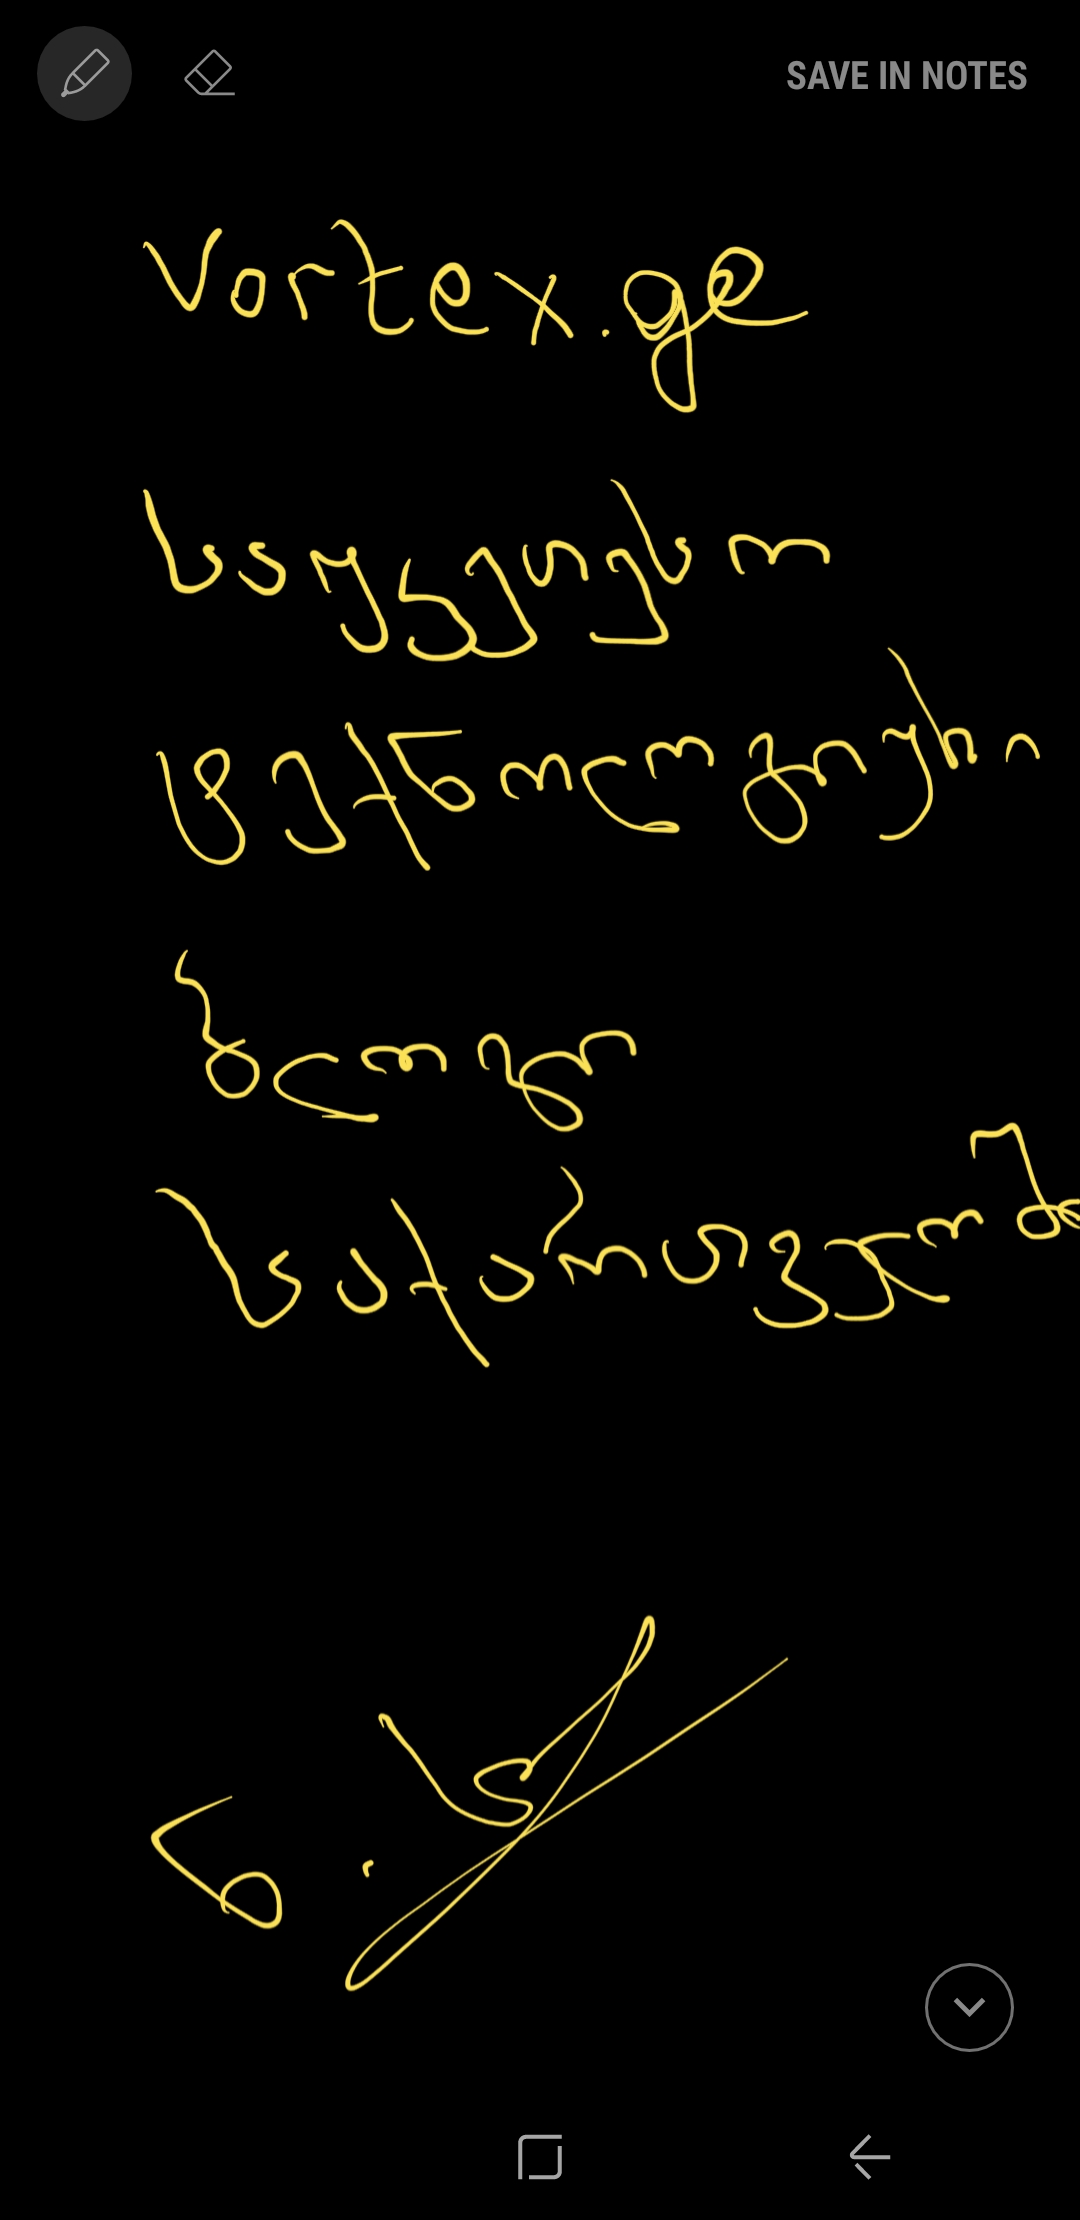 SAVE IN NOTES
Vortex.ge
საუკეთესო
ტექნოლოგიური
ბლოგი
საქართველოში
ნ.